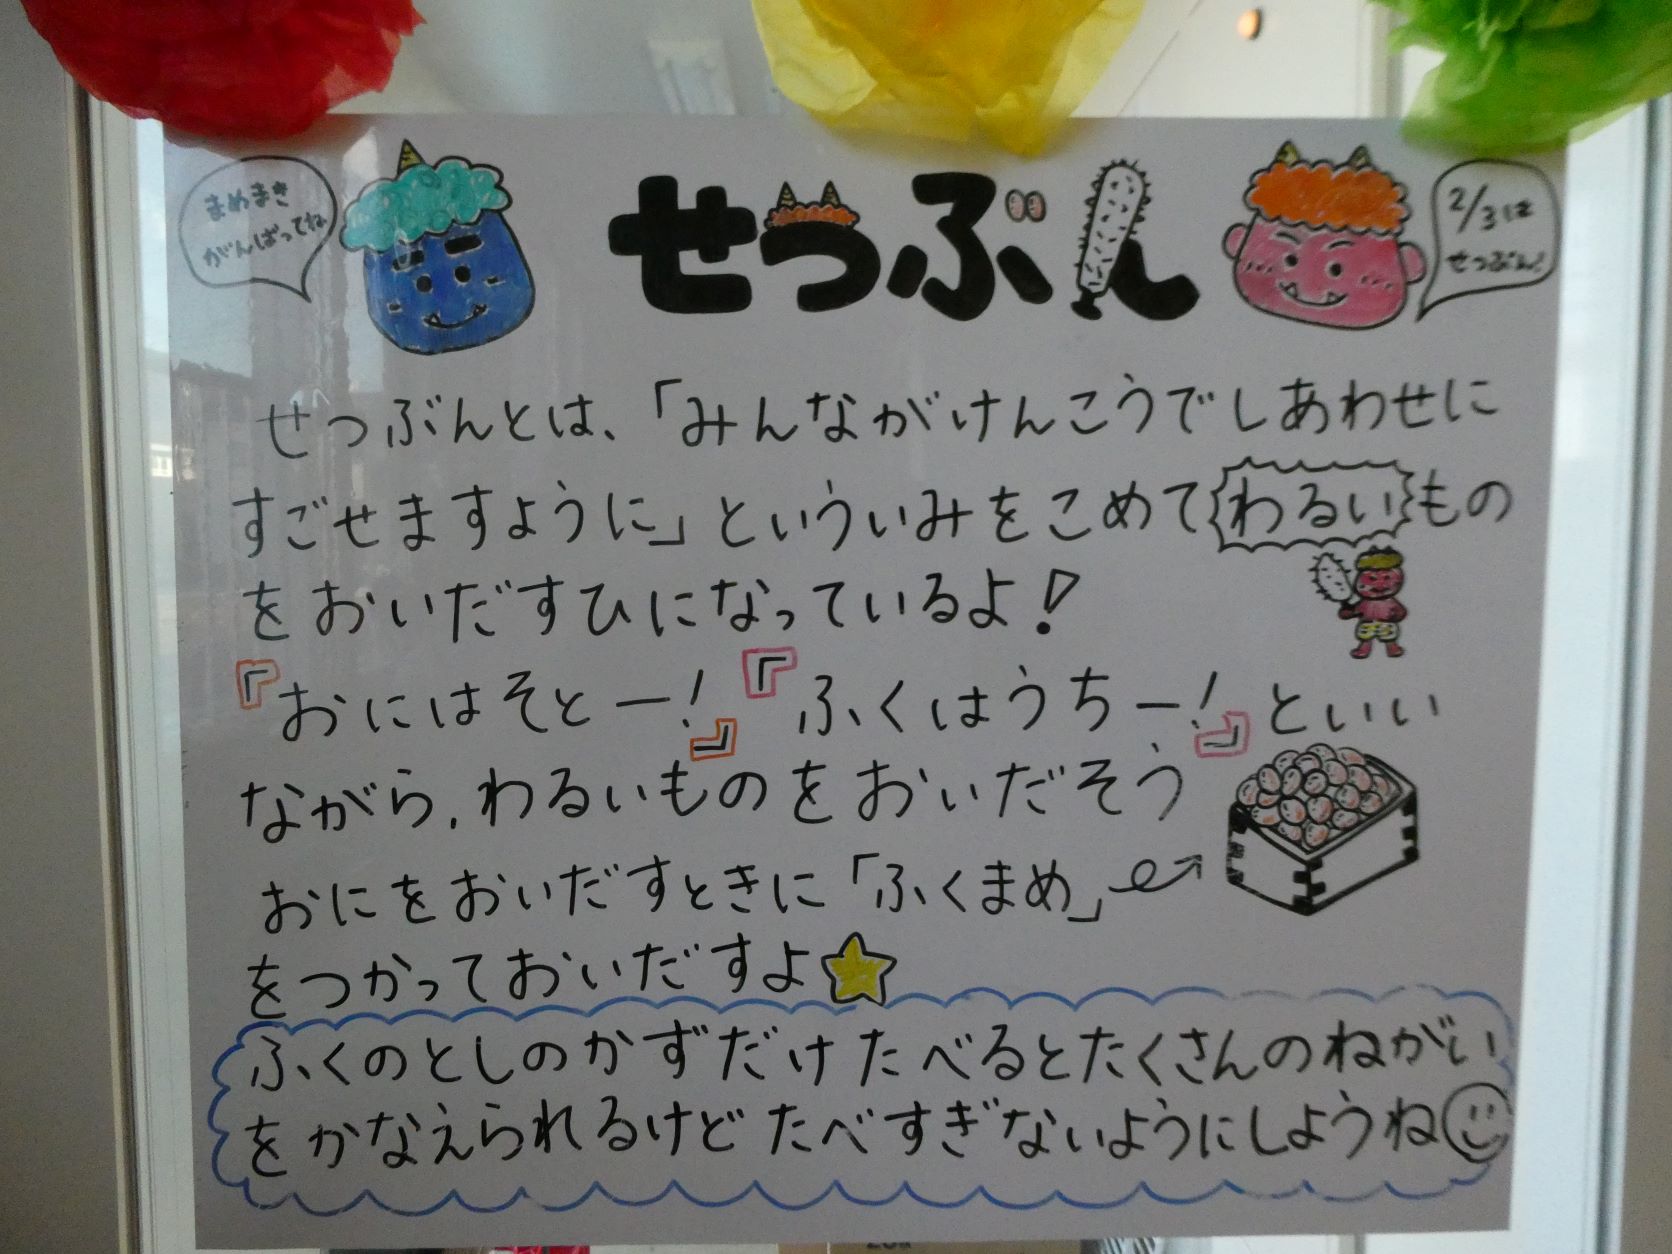 まめまき
がんばってね
せつぶん
2/3は
せつぶん!
せつぶんとは、「みんながけんこうでしあわせに
すごせますように」といういみをこめてわるいもの
をおいだすひになっているよ!
『おにはそとー!』『ふくはうちー!』といい
ながら、わるいものをおいだそう
おにをおいだすときに「ふくまめ」
をつかっておいだすよ
ふくのとしのかずだけたべるとたくさんのねがい
をかなえられるけどたべすぎないようにしようね